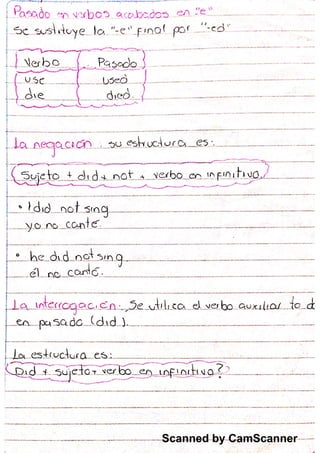 Pasado en verbos acabados en "e"
Se sustituye la "-e" final por "-ed"
Verbo Pasado
use used
die died.
La negación. su estructura es:
Sujeto + did + not + verbo en infinitivo.
• I did not sing
yo no canté.
• he did not sing.
él no cantó.
La interrogación: Se utiliza el verbo auxiliar to d
en pasado (did).
La estructura es:
Did + sujeto + verbo en infinitivo?
Scanned by CamScanner